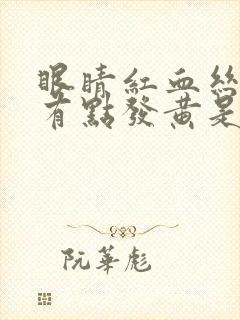 眼睛紅血絲
有點發黃是
阮華彪